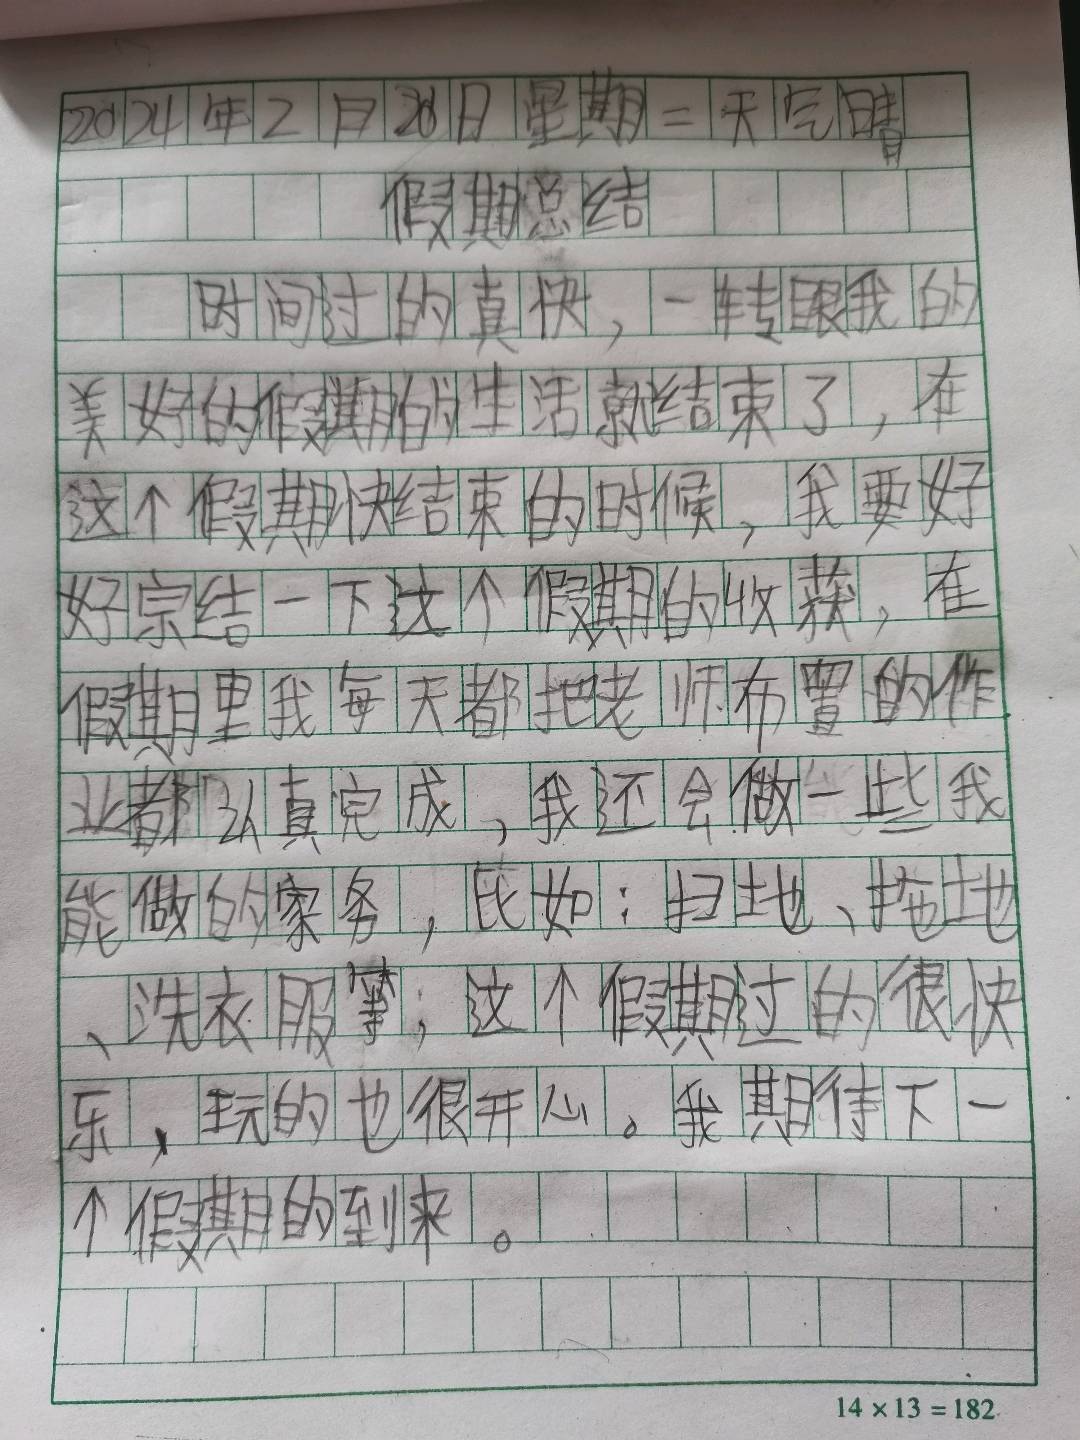 2024年2月20日星期二天气晴
假期总结
时间过的真快,一转眼我的
美好的假期的生活就结束了,在
这个假期快结束的时候,我要好
好宗结一下这个假期的收获,在
假期里我每天都把老师布置的作
业都认真完成,我还会做一些我
能做的家务,比如:扫地、拖地
、洗衣服等;这个假期过的很快
乐,玩的也很开心。我期待下一
个假期的到来。
14×13=182